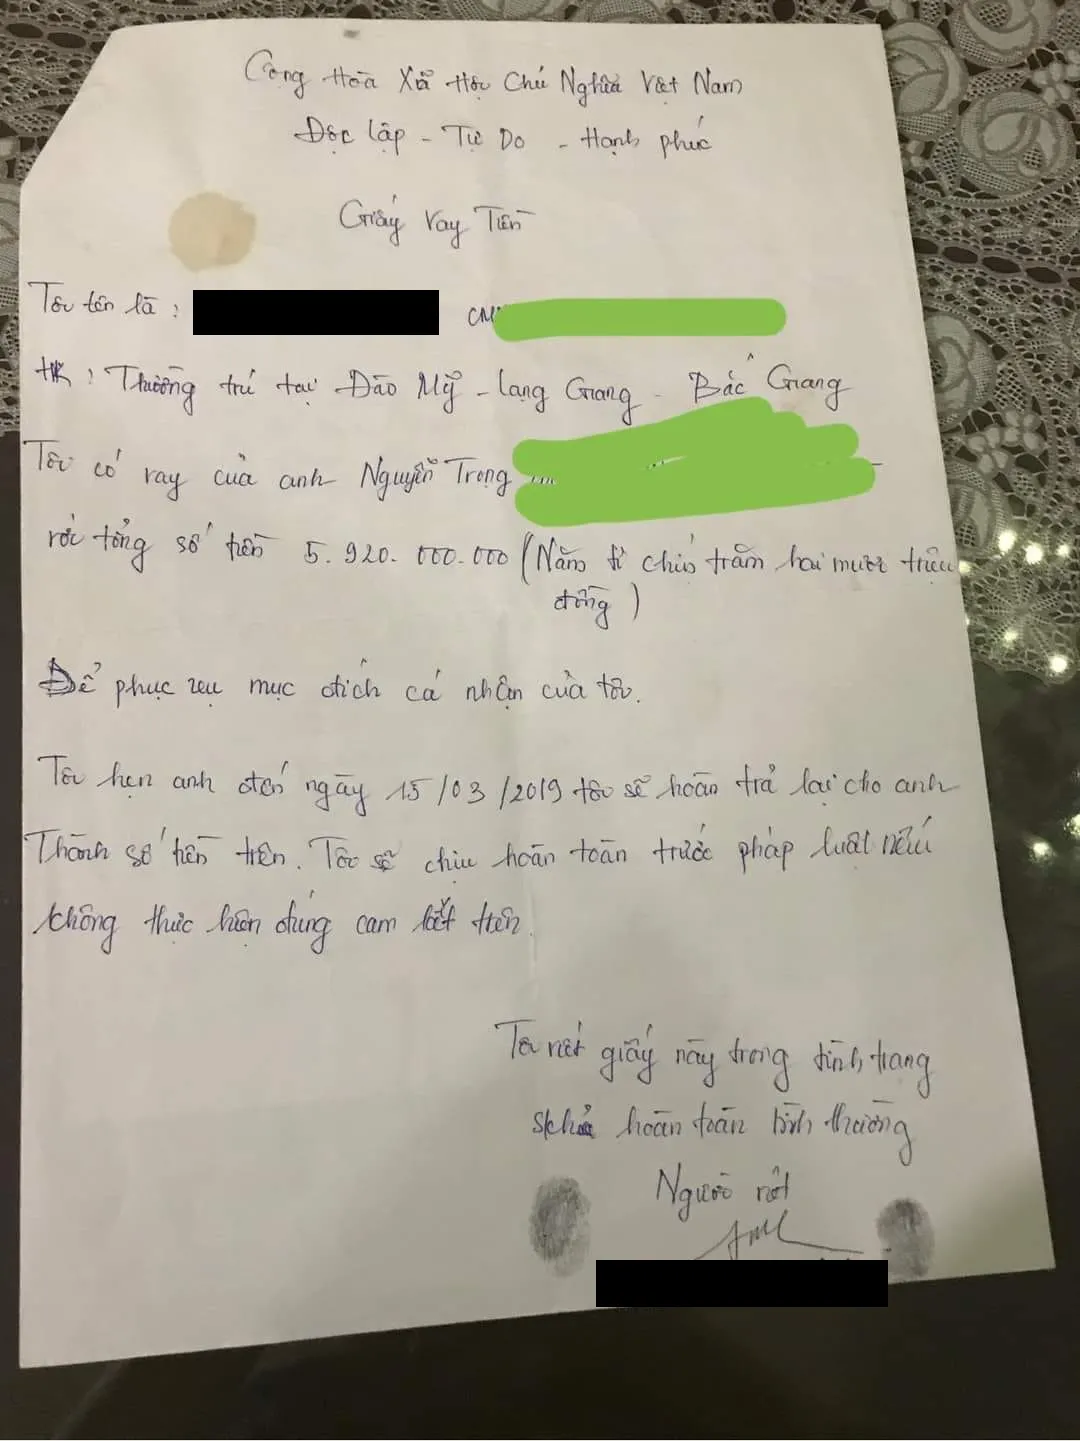 Cộng Hòa Xã Hội Chủ Nghĩa Việt Nam
Độc lập - Tự Do - Hạnh phúc
Giấy Vay Tiền
Tôi tên là :
HK : Thường trú tại Đào Mỹ - Lạng Giang - Bắc Giang
Tôi có vay của anh Nguyễn Trọng
với tổng số tiền 5.920.000.000 (Năm tỉ chín trăm hai mươi triệu
đồng)
Để phục vụ mục đích cá nhân của tôi.
Tôi hẹn anh đến ngày 15/03/2019 tôi sẽ hoàn trả lại cho anh
Thành số tiền trên. Tôi sẽ chịu hoàn toàn trước pháp luật nếu
không thực hiện đúng cam kết trên.
Tôi viết giấy này trong tình trạng
hoàn toàn bình thường
Người viết